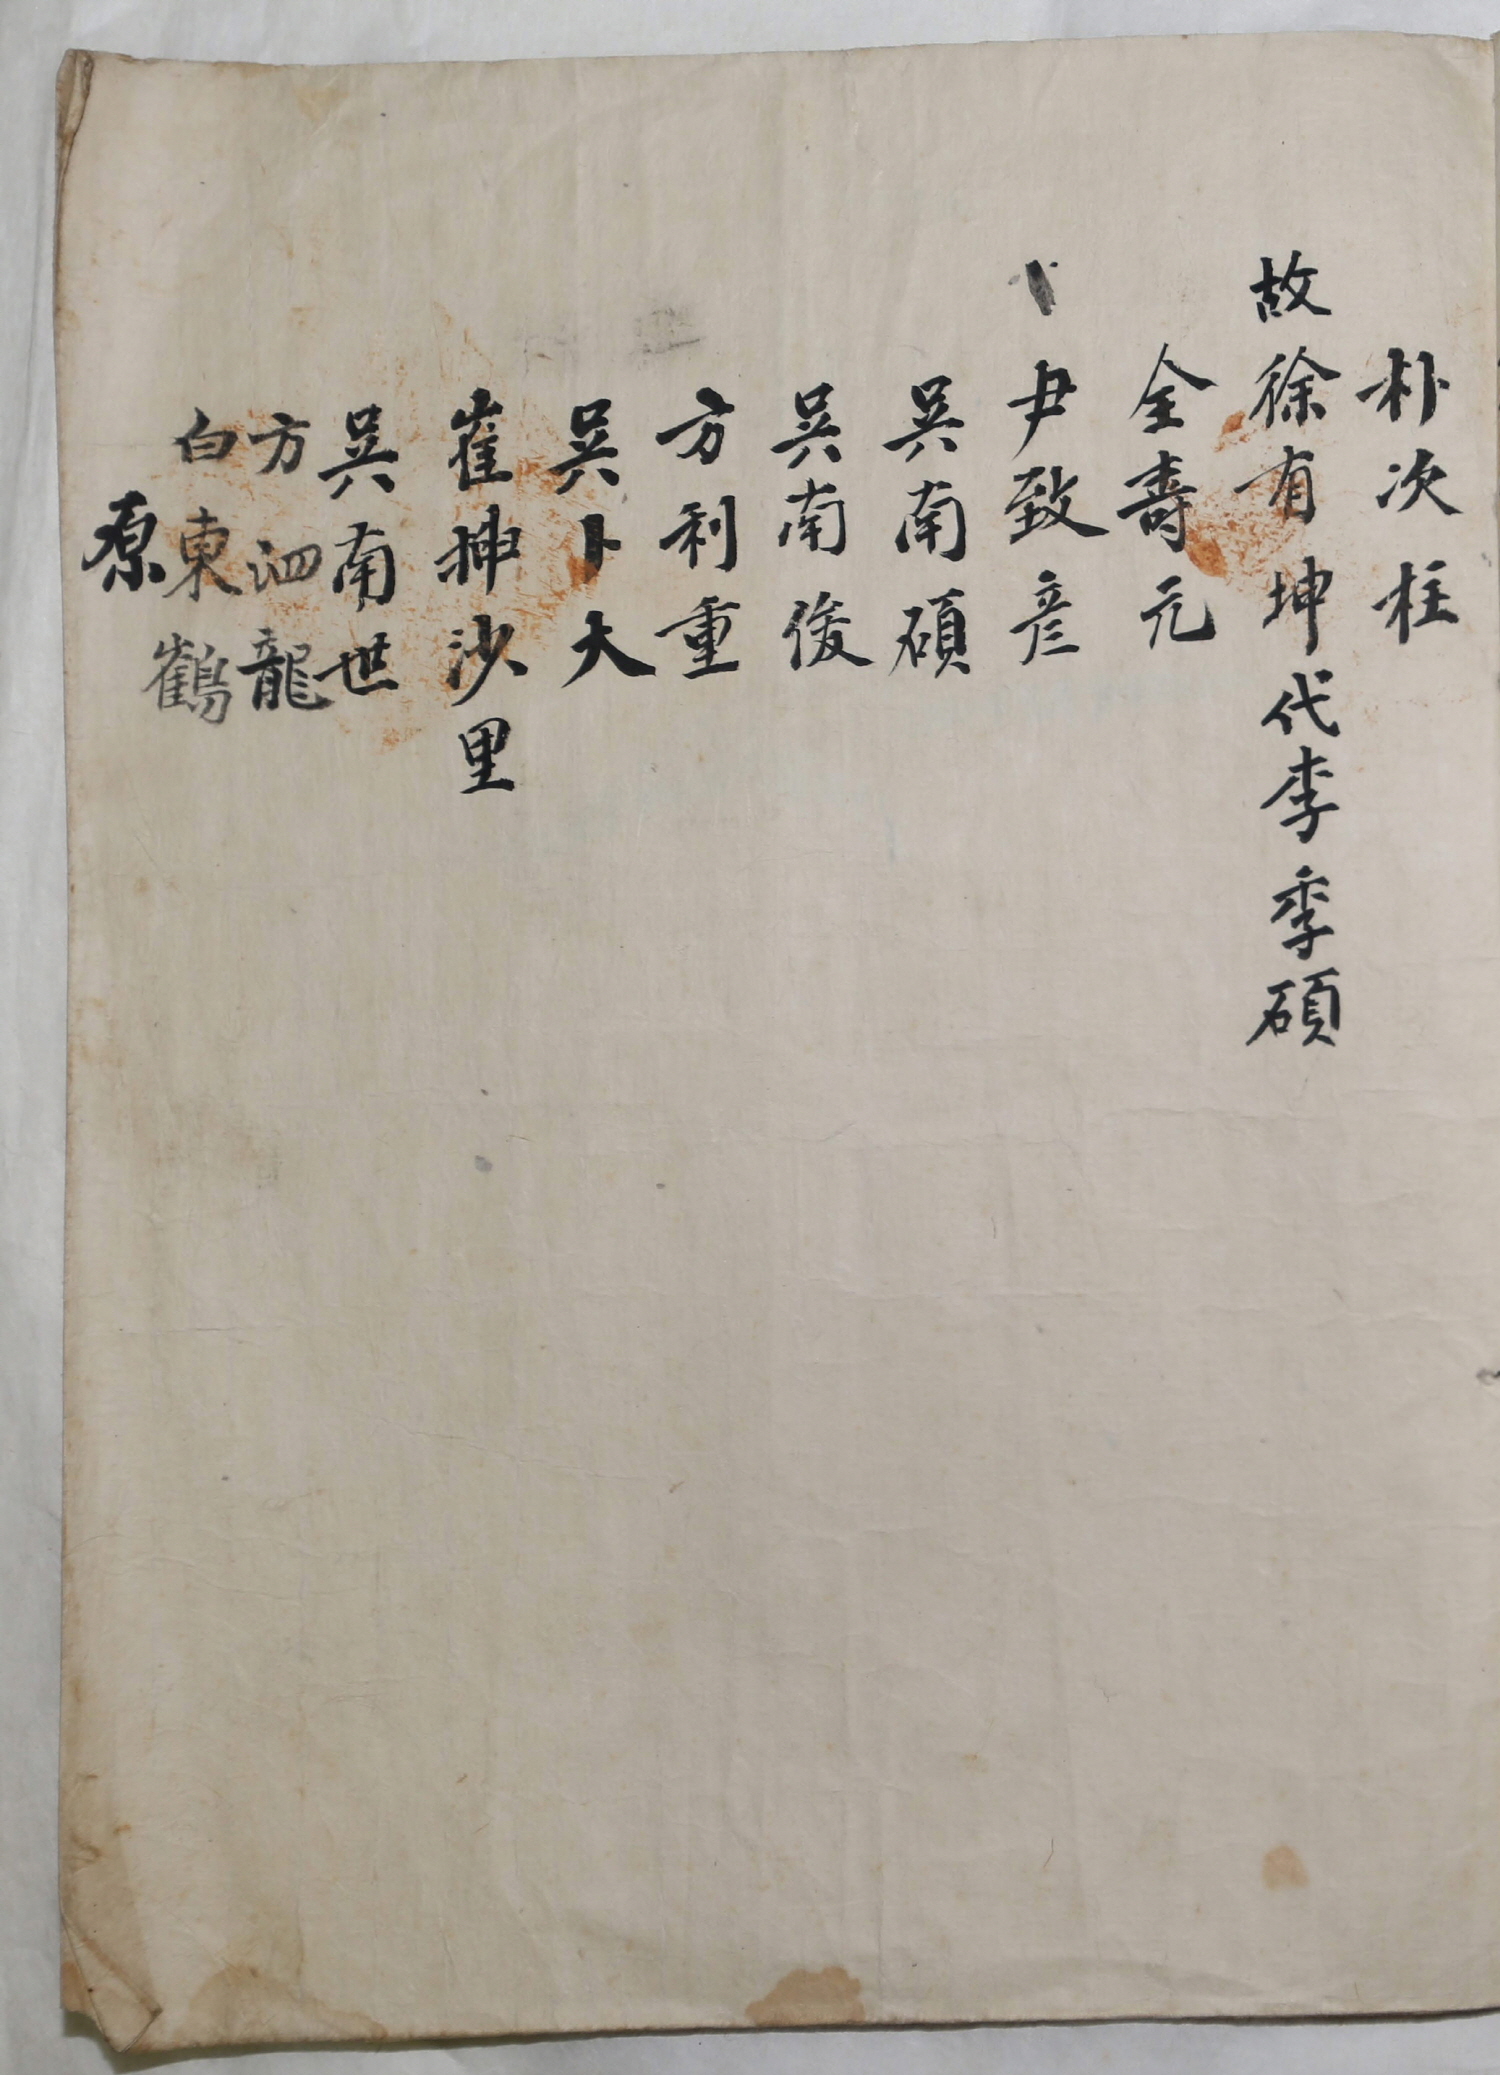 朴次柱
故徐有坤代李季碩
全壽元
尹致彦
吳南碩
吳南俊
方利重
吳卜大
崔抻沙里
吳南世
方泗龍
白東鶴
原